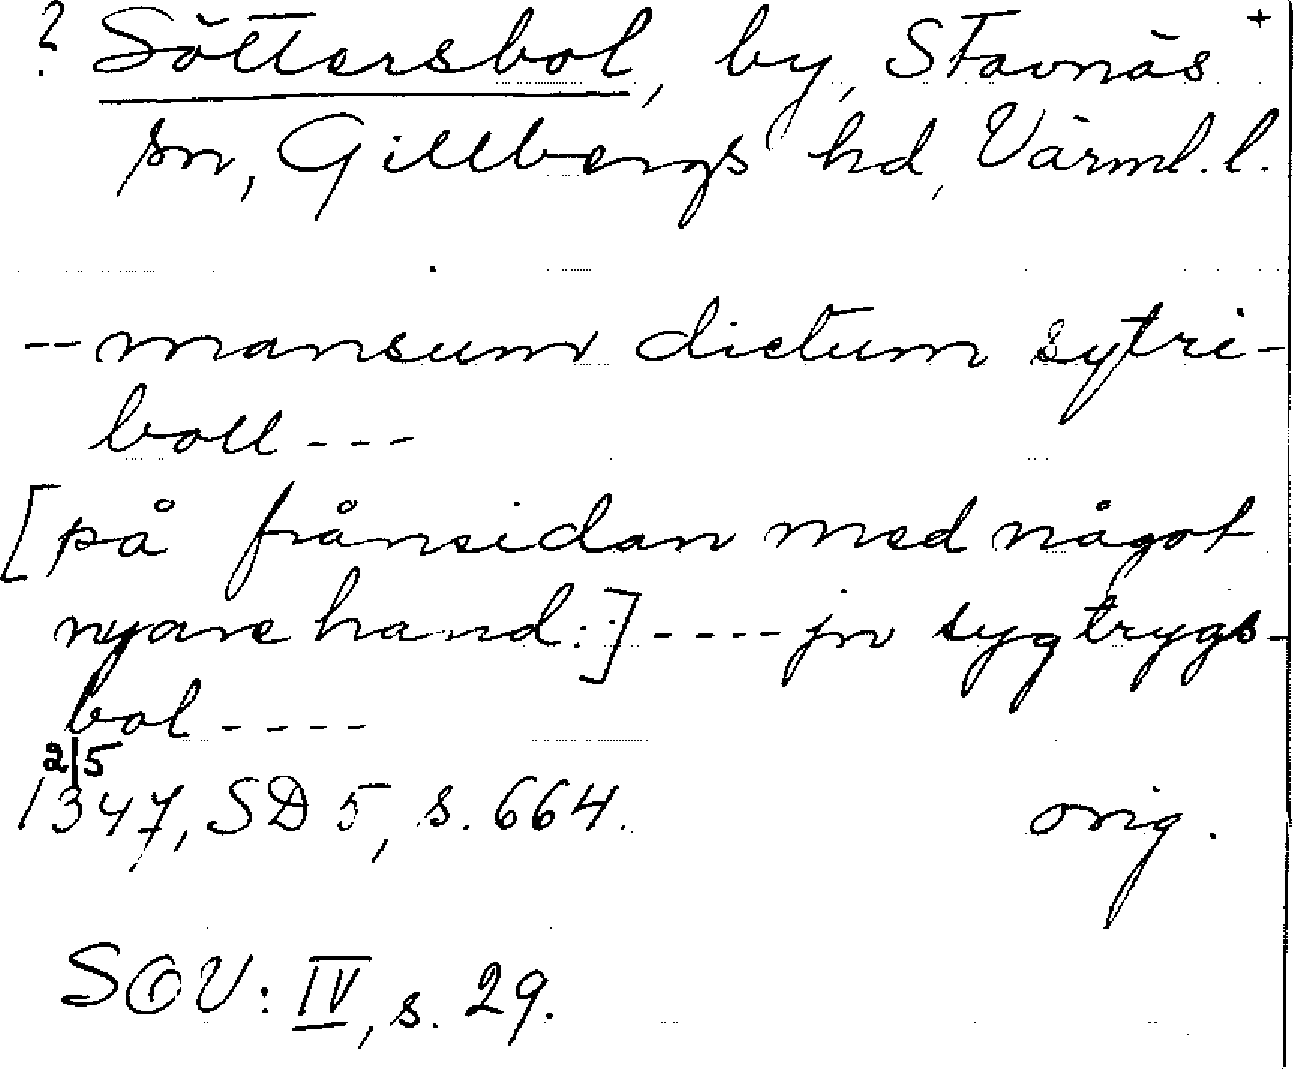 ? Söttersbol, by, Stavnäs +
sn, Gillbergs hd, Värml. l.
-- mansum dictum sytri-
boll ---
[på frånsidan med något
nyare hand:] ---- jn sygtrygs-
bol ----
2/5
1347, SD 5, s. 664. orig.
SOV: IV, s. 29.